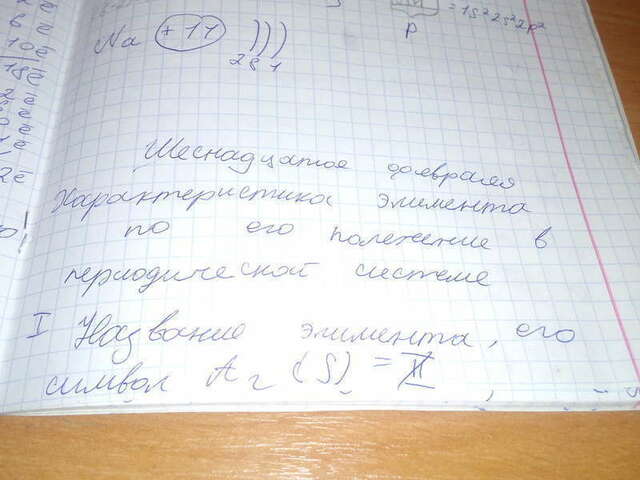 6
10ē
18ē
2ē
= 1S² 2S² 2p²
p
Na +11 )))
2 8 1
Шеснадцатое февраля
Характеристика элимента
по его полежение в
периодической системе
I Название элимента, его
символ Ar (S) = II